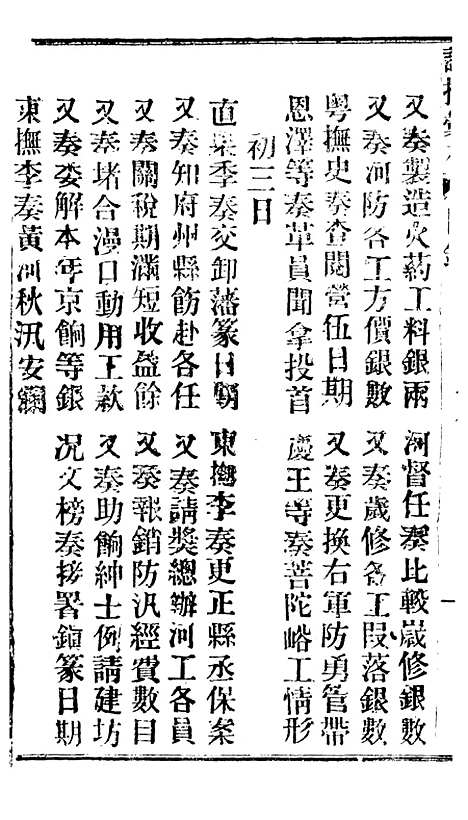 又奏製造火药工料銀兩
河督任奏比較歲修銀數
又奏河防各工方價銀數
又奏歲修各工段落銀數
粤撫史奏查閱營伍日期
又奏更换右軍防勇管帶
恩澤等奏革員聞拿投首
慶王等奏菩陀峪工情形
初三日
直桌季奏交卸藩篆日期
東撫李奏更正縣丞保案
又奏知府州縣飭赴各任
又奏請奬總辦河工各員
又奏關稅期滿短收盈餘
又奏報銷防汛經費數目
又奏堵合漫口動用正款
又奏助餉紳士例請建坊
又奏委解本年京餉等銀
况文榜奏接署鎮篆日期
東撫李奏黃河秋汛安瀾